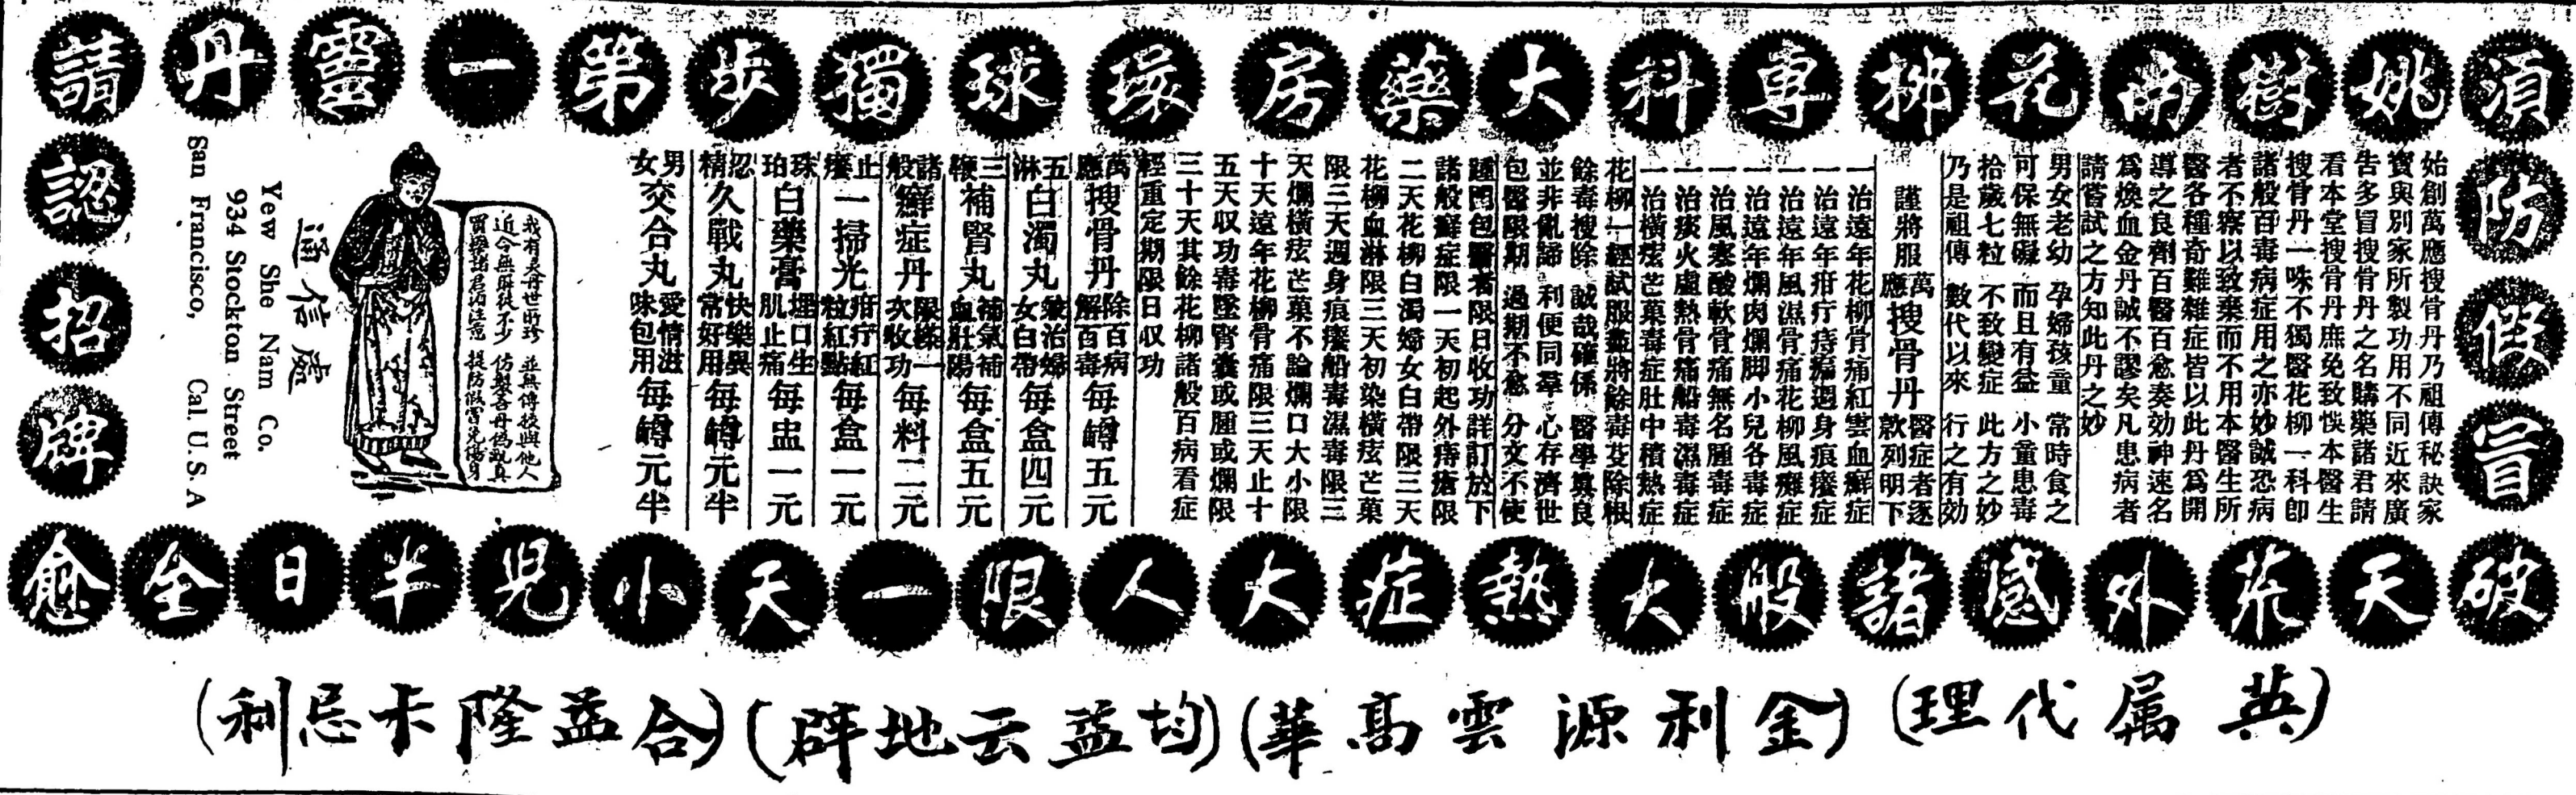 須防假冒
姚樹南花柳專科大藥房
環球獨步第一靈丹
請認招牌
始創萬應搜骨丹乃祖傳秘訣家
寶與別家所製功用不同近來廣
告多冒搜骨丹之名購藥諸君請
看本堂搜骨丹庶免致悞本醫生
搜骨丹一味不獨醫花柳一科即
諸般百毒病症用之亦妙誠恐病
者不察以致棄而不用本醫生所
醫各種奇難雜症皆以此丹爲開
導之良劑百醫百愈奏効神速名
爲煥血金丹誠不謬矣凡患病者
請嘗試之方知此丹之妙
男女老幼 孕婦孩童 常時食之
可保無礙 而且有益 小童患毒
拾歲七粒 不致變症 此方之妙
乃是祖傳 數代以來 行之有効
謹將服萬應搜骨丹醫症者逐欵列明下
一治遠年花柳骨痛紅雲血癬症
一治遠年疳疔痔瘡週身痕癢症
一治遠年風濕骨痛花柳風癱症
一治遠年爛肉爛脚小兒各毒症
一治風寒酸軟骨痛無名腫毒症
一治痰火虛熱骨痛船毒濕毒症
一治橫痃芒菓毒症肚中積熱症
花柳一經試服盡將餘毒芟除根
餘毒搜除 誠哉確係 醫學眞良
並非亂諦 利便同羣 心存濟世
包醫限期 過期不愈 分文不使
踵門包醫者限日收功詳訂於下
諸般癬症限一天初起外痔瘡限
二天花柳白濁婦女白帶限三天
花柳血淋限三天初染橫痃芒菓
限三天週身痕癢船毒濕毒限三
天爛橫痃芒菓不論爛口大小限
十天遠年花柳骨痛限三天止十
五天收功毒墜腎囊或腫或爛限
三十天其餘花柳諸般百病看症
輕重定期限日收功
萬應搜骨丹 除百病解百毒 每罇五元
五淋白濁丸 兼治婦女白帶 每盒四元
三鞭補腎丸 補氣補血壯陽 每盒五元
諸般癬症丹 限搽一次收功 每料二元
止癢一掃光 疳疔紅粒紅點 每盒一元
珠珀白藥膏 埋口生肌止痛 每盅一元
忍精久戰丸 快樂異常好用 每罇元半
男女交合丸 愛情滋味包用 每罇元半
我有灵丹世所珍 並無傳授與他人
近今無賴徒不少 仿製吾丹偽亂真
買藥諸君須注意 提防假冒免傷身
通信處
Yew She Nam Co.
934 Stockton Street
San Francisco, Cal. U. S. A
破天荒外感諸般大熱症大人限一天小兒半日全愈
(英屬代理)(金利源雲高華)(均益云地辟)(合益隆卡忌利)